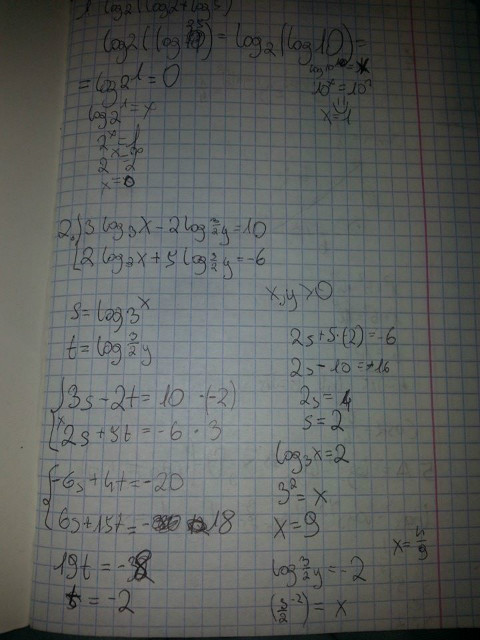 log2(log2+log5)
log2((log10) = log2(log10) =
log10 = x
= log2 1 = 0
10^x = 10^1
log2 1 = x
x = 1
2^x = 1
2^x = 2^0
x = 0
2. { 3 log3 x - 2 log 3/2 y = 10
2 log3 x + 5 log 3/2 y = -6
x, y > 0
s = log3^x
t = log 3/2 y
{ 3s - 2t = 10 ·(-2)
2s + 5t = -6 · 3
{ -6s + 4t = -20
6s + 15t = - 18
19t = -38
t = -2
2s + 5·(2) = -6
2s - 10 = -16
2s = 4
s = 2
log3 x = 2
3^2 = x
x = 9
log 3/2 y = -2
(3/2^-2) = x
x = 4/9